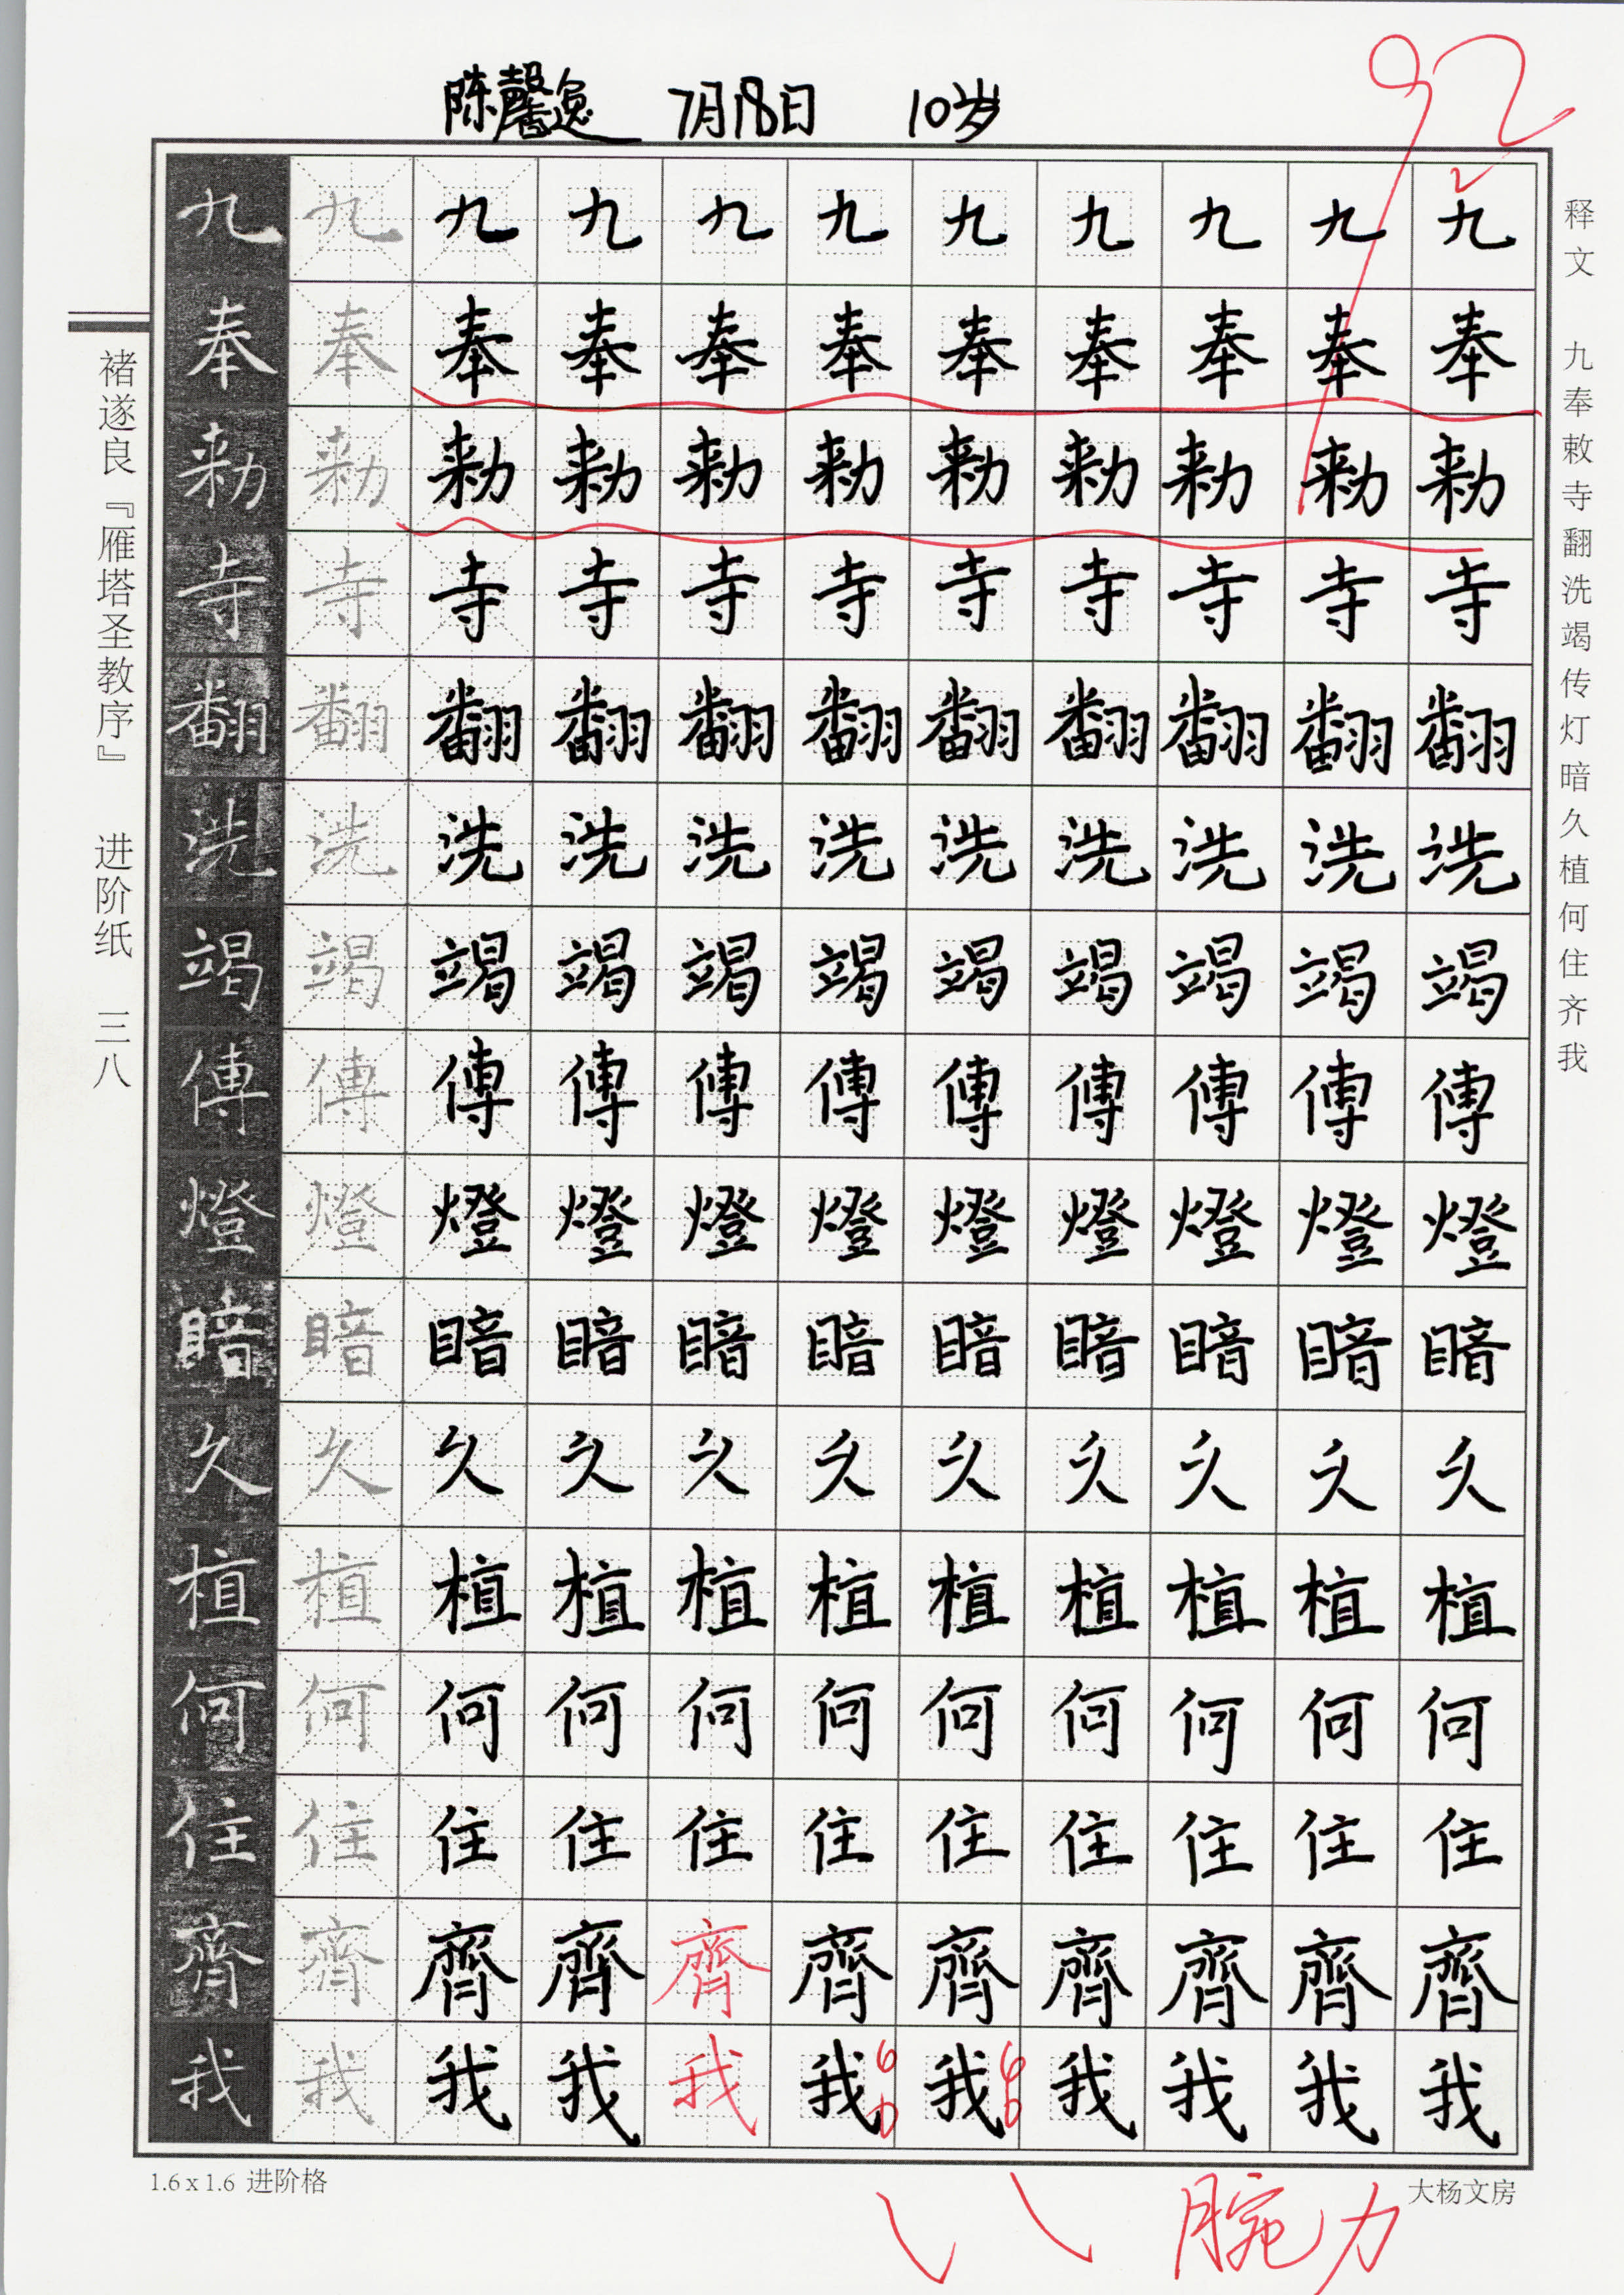 陈馨逸 7月18日 10岁
92
九 九 九 九 九 九 九 九 九 九 九
奉 奉 奉 奉 奉 奉 奉 奉 奉 奉 奉
勑 勑 勑 勑 勑 勑 勑 勑 勑 勑 勑
寺 寺 寺 寺 寺 寺 寺 寺 寺 寺 寺
翻 翻 翻 翻 翻 翻 翻 翻 翻 翻 翻
洗 洗 洗 洗 洗 洗 洗 洗 洗 洗 洗
竭 竭 竭 竭 竭 竭 竭 竭 竭 竭 竭
傳 傳 傳 傳 傳 傳 傳 傳 傳 傳 傳
燈 燈 燈 燈 燈 燈 燈 燈 燈 燈 燈
暗 暗 暗 暗 暗 暗 暗 暗 暗 暗 暗
久 久 久 久 久 久 久 久 久 久 久
植 植 植 植 植 植 植 植 植 植 植
何 何 何 何 何 何 何 何 何 何 何
住 住 住 住 住 住 住 住 住 住 住
齊 齊 齊 齊 齊 齊 齊 齊 齊 齊 齊
我 我 我 我 我 我 我 我 我 我 我
释文 九奉敕寺翻洗竭传灯暗久植何住齐我
褚遂良『雁塔圣教序』 进阶纸 三八
1.6 x 1.6 进阶格
大杨文房
腕力